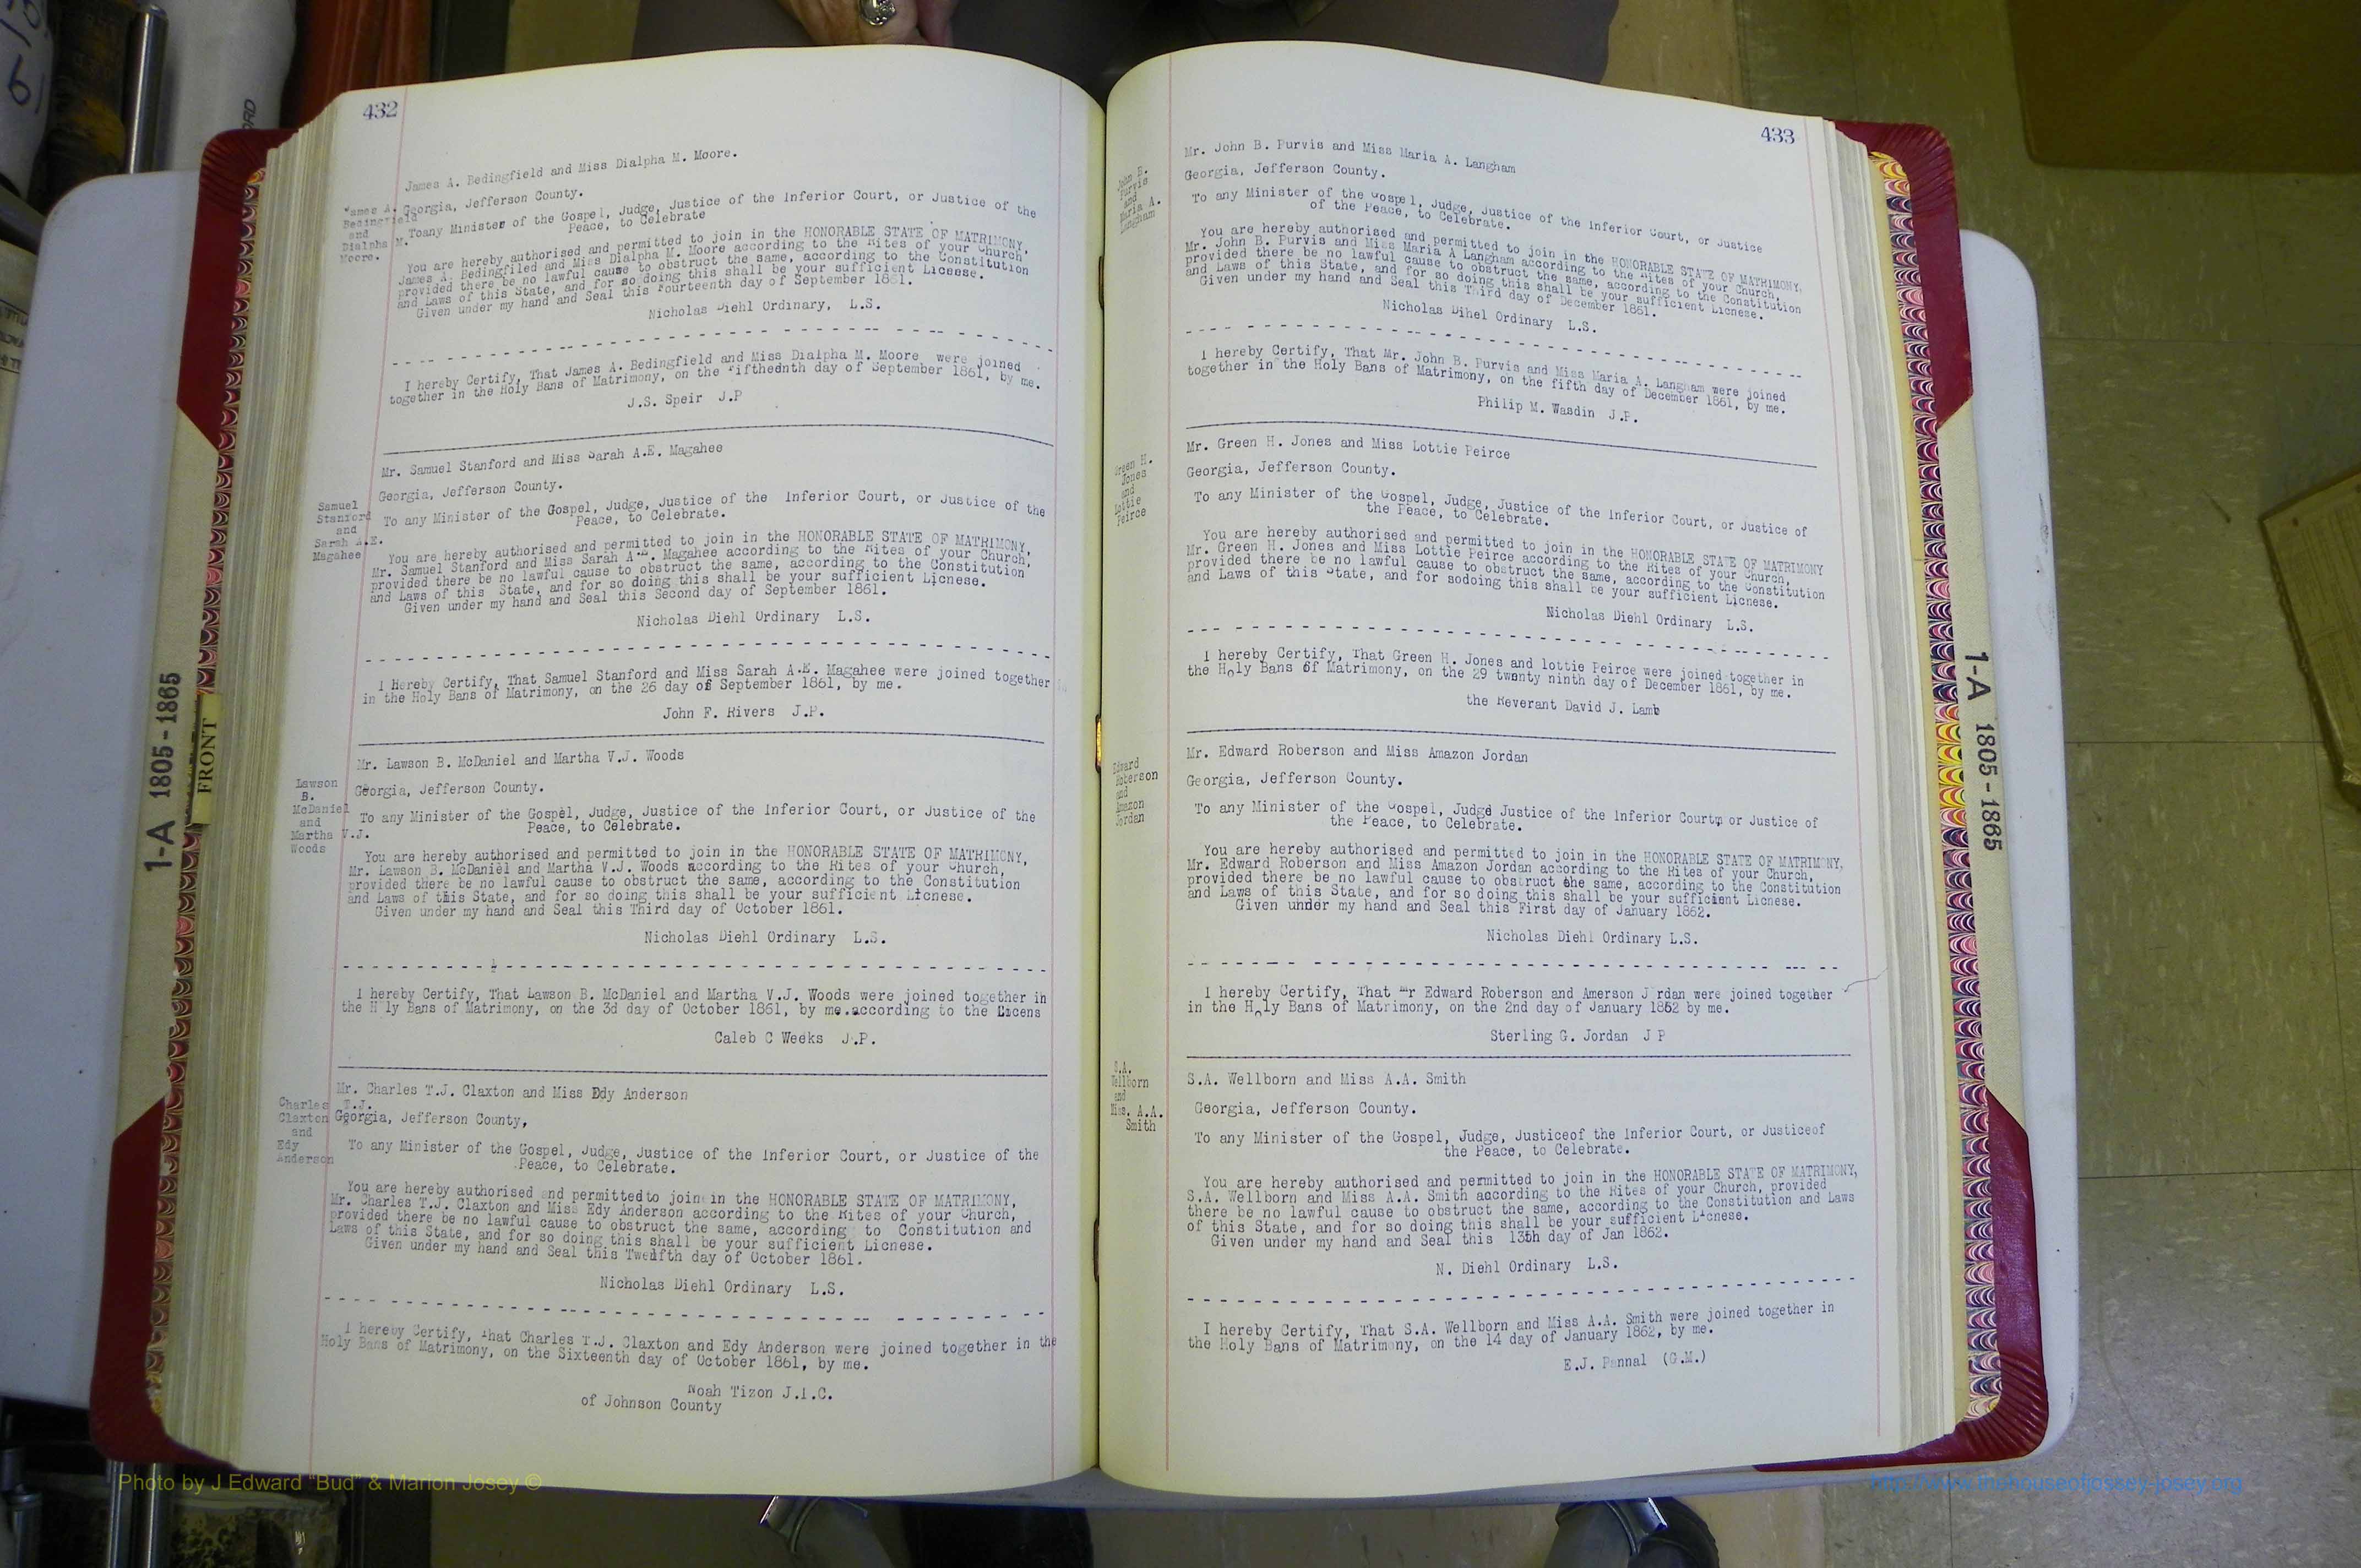 432
James A. Bedingfield and Miss Dialpha M. Moore.
James A.
Bedingfield
and
Dialpha M.
Moore.
Georgia, Jefferson County.
Toany Minister of the Gospel, Judge, Justice of the Inferior Court, or Justice of the
Peace, to Celebrate
You are hereby authorised and permitted to join in the HONORABLE STATE OF MATRIMONY,
James A. Bedingfiled and Miss Dialpha M. Moore according to the Rites of your Church,
provided there be no lawful cause to obstruct the same, according to the Constitution
and Laws of this State, and for so doing this shall be your sufficient Licnese.
Given under my hand and Seal this Fourteenth day of September 1861.
Nicholas Diehl Ordinary, L.S.
I hereby Certify, That James A. Bedingfield and Miss Dialpha M. Moore were joined
together in the Holy Bans of Matrimony, on the Fiftheenth day of September 1861, by me.
J.S. Speir J.P
Mr. Samuel Stanford and Miss Sarah A.E. Magahee
Samuel
Stanford
and
Sarah A.E.
Magahee
Georgia, Jefferson County.
To any Minister of the Gospel, Judge, Justice of the Inferior Court, or Justice of the
Peace, to Celebrate.
You are hereby authorised and permitted to join in the HONORABLE STATE OF MATRIMONY,
Mr. Samuel Stanford and Miss Sarah A.E. Magahee according to the Rites of your Church,
provided there be no lawful cause to obstruct the same, according to the Constitution
and Laws of this State, and for so doing this shall be your sufficient Licnese.
Given under my hand and Seal this Second day of September 1861.
Nicholas Diehl Ordinary L.S.
I Hereby Certify, That Samuel Stanford and Miss Sarah A.E. Magahee were joined together
in the Holy Bans of Matrimony, on the 26 day of September 1861, by me.
John F. Rivers J.P.
Mr. Lawson B. McDaniel and Martha V.J. Woods
Lawson
B.
McDaniel
and
Martha V.J.
Woods
Georgia, Jefferson County.
To any Minister of the Gospel, Judge, Justice of the Inferior Court, or Justice of the
Peace, to Celebrate.
You are hereby authorised and permitted to join in the HONORABLE STATE OF MATRIMONY,
Mr. Lawson B. McDaniel and Martha V.J. Woods according to the Rites of your Church,
provided there be no lawful cause to obstruct the same, according to the Constitution
and Laws of this State, and for so doing this shall be your sufficient Licnese.
Given under my hand and Seal this Third day of October 1861.
Nicholas Diehl Ordinary L.S.
I hereby Certify, That Lawson B. McDaniel and Martha V.J. Woods were joined together in
the Holy Bans of Matrimony, on the 3d day of October 1861, by me.according to the Licens
Caleb C Weeks J.P.
Mr. Charles T.J. Claxton and Miss Edy Anderson
Charles T.J.
Claxton
and
Edy
Anderson
Georgia, Jefferson County,
To any Minister of the Gospel, Judge, Justice of the Inferior Court, or Justice of the
Peace, to Celebrate.
You are hereby authorised and permitted to join in the HONORABLE STATE OF MATRIMONY,
Mr. Charles T.J. Claxton and Miss Edy Anderson according to the Rites of your Church,
provided there be no lawful cause to obstruct the same, according to Constitution and
Laws of this State, and for so doing this shall be your sufficient Licnese.
Given under my hand and Seal this Twelfth day of October 1861.
Nicholas Diehl Ordinary L.S.
I hereby Certify, That Charles T.J. Claxton and Edy Anderson were joined together in the
Holy Bans of Matrimony, on the Sixteenth day of October 1861, by me.
Noah Tizon J.I.C.
of Johnson County
433
Mr. John B. Purvis and Miss Maria A. Langham
John B.
Purvis
and
Maria A.
Langham
Georgia, Jefferson County.
To any Minister of the Gospel, Judge, Justice of the Inferior Court, or Justice
of the Peace, to Celebrate.
You are hereby authorised and permitted to join in the HONORABLE STATE OF MATRIMONY,
Mr. John B. Purvis and Miss Maria A Langham according to the Rites of your Church,
provided there be no lawful cause to obstruct the same, according to the Constitution
and Laws of this State, and for so doing this shall be your sufficient Licnese.
Given under my hand and Seal this Third day of December 1861.
Nicholas Dihel Ordinary L.S.
I hereby Certify, That Mr. John B. Purvis and Miss Maria A. Langham were joined
together in the Holy Bans of Matrimony, on the fifth day of December 1861, by me.
Philip M. Wasdin J.P.
Mr. Green H. Jones and Miss Lottie Peirce
Green H.
Jones
and
Lottie
Peirce
Georgia, Jefferson County.
To any Minister of the Gospel, Judge, Justice of the Inferior Court, or Justice of
the Peace, to Celebrate.
You are hereby authorised and permitted to join in the HONORABLE STATE OF MATRIMONY
Mr. Green H. Jones and Miss Lottie Peirce according to the Rites of your Church,
provided there be no lawful cause to obstruct the same, according to the Constitution
and Laws of this State, and for sodoing this shall be your sufficient Licnese.
Nicholas Diehl Ordinary L.S.
I hereby Certify, That Green H. Jones and lottie Peirce were joined together in
the Holy Bans of Matrimony, on the 29 twenty ninth day of December 1861, by me.
the Reverant David J. Lamb
Mr. Edward Roberson and Miss Amazon Jordan
Edward
Roberson
and
Amazon
Jordan
Georgia, Jefferson County.
To any Minister of the Gospel, Judge Justice of the Inferior Court, or Justice of
the Peace, to Celebrate.
You are hereby authorised and permitted to join in the HONORABLE STATE OF MATRIMONY,
Mr. Edward Roberson and Miss Amazon Jordan according to the Rites of your Church,
provided there be no lawful cause to obstruct the same, according to the Constitution
and Laws of this State, and for so doing this shall be your sufficient Licnese.
Given under my hand and Seal this First day of January 1862.
Nicholas Diehl Ordinary L.S.
I hereby Certify, That Mr Edward Roberson and Amerson Jordan were joined together
in the Holy Bans of Matrimony, on the 2nd day of January 1862 by me.
Sterling G. Jordan J P
S.A. Wellborn and Miss A.A. Smith
S.A.
Wellborn
and
Miss. A.A.
Smith
Georgia, Jefferson County.
To any Minister of the Gospel, Judge, Justiceof the Inferior Court, or Justiceof
the Peace, to Celebrate.
You are hereby authorised and permitted to join in the HONORABLE STATE OF MATRIMONY,
S.A. Wellborn and Miss A.A. Smith according to the Rites of your Church, provided
there be no lawful cause to obstruct the same, according to the Constitution and Laws
of this State, and for so doing this shall be your sufficient Licnese.
Given under my hand and Seal this 13th day of Jan 1862.
N. Diehl Ordinary L.S.
I hereby Certify, That S.A. Wellborn and Miss A.A. Smith were joined together in
the Holy Bans of Matrimony, on the 14 day of January 1862, by me.
E.J. Pannal (G.M.)
1-A 1805-1865
FRONT
1-A 1805-1865
Photo by J Edward "Bud" & Marion Josey ©
http://www.thehouseofjossey-josey.org